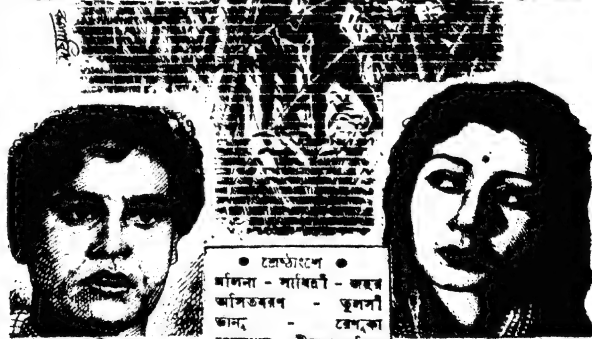 ● শ্রেষ্ঠাংশে ●
মলিনা - সাবিত্রী - জহর
অসিতবরণ - তুলসী
ভানু - রেণুকা